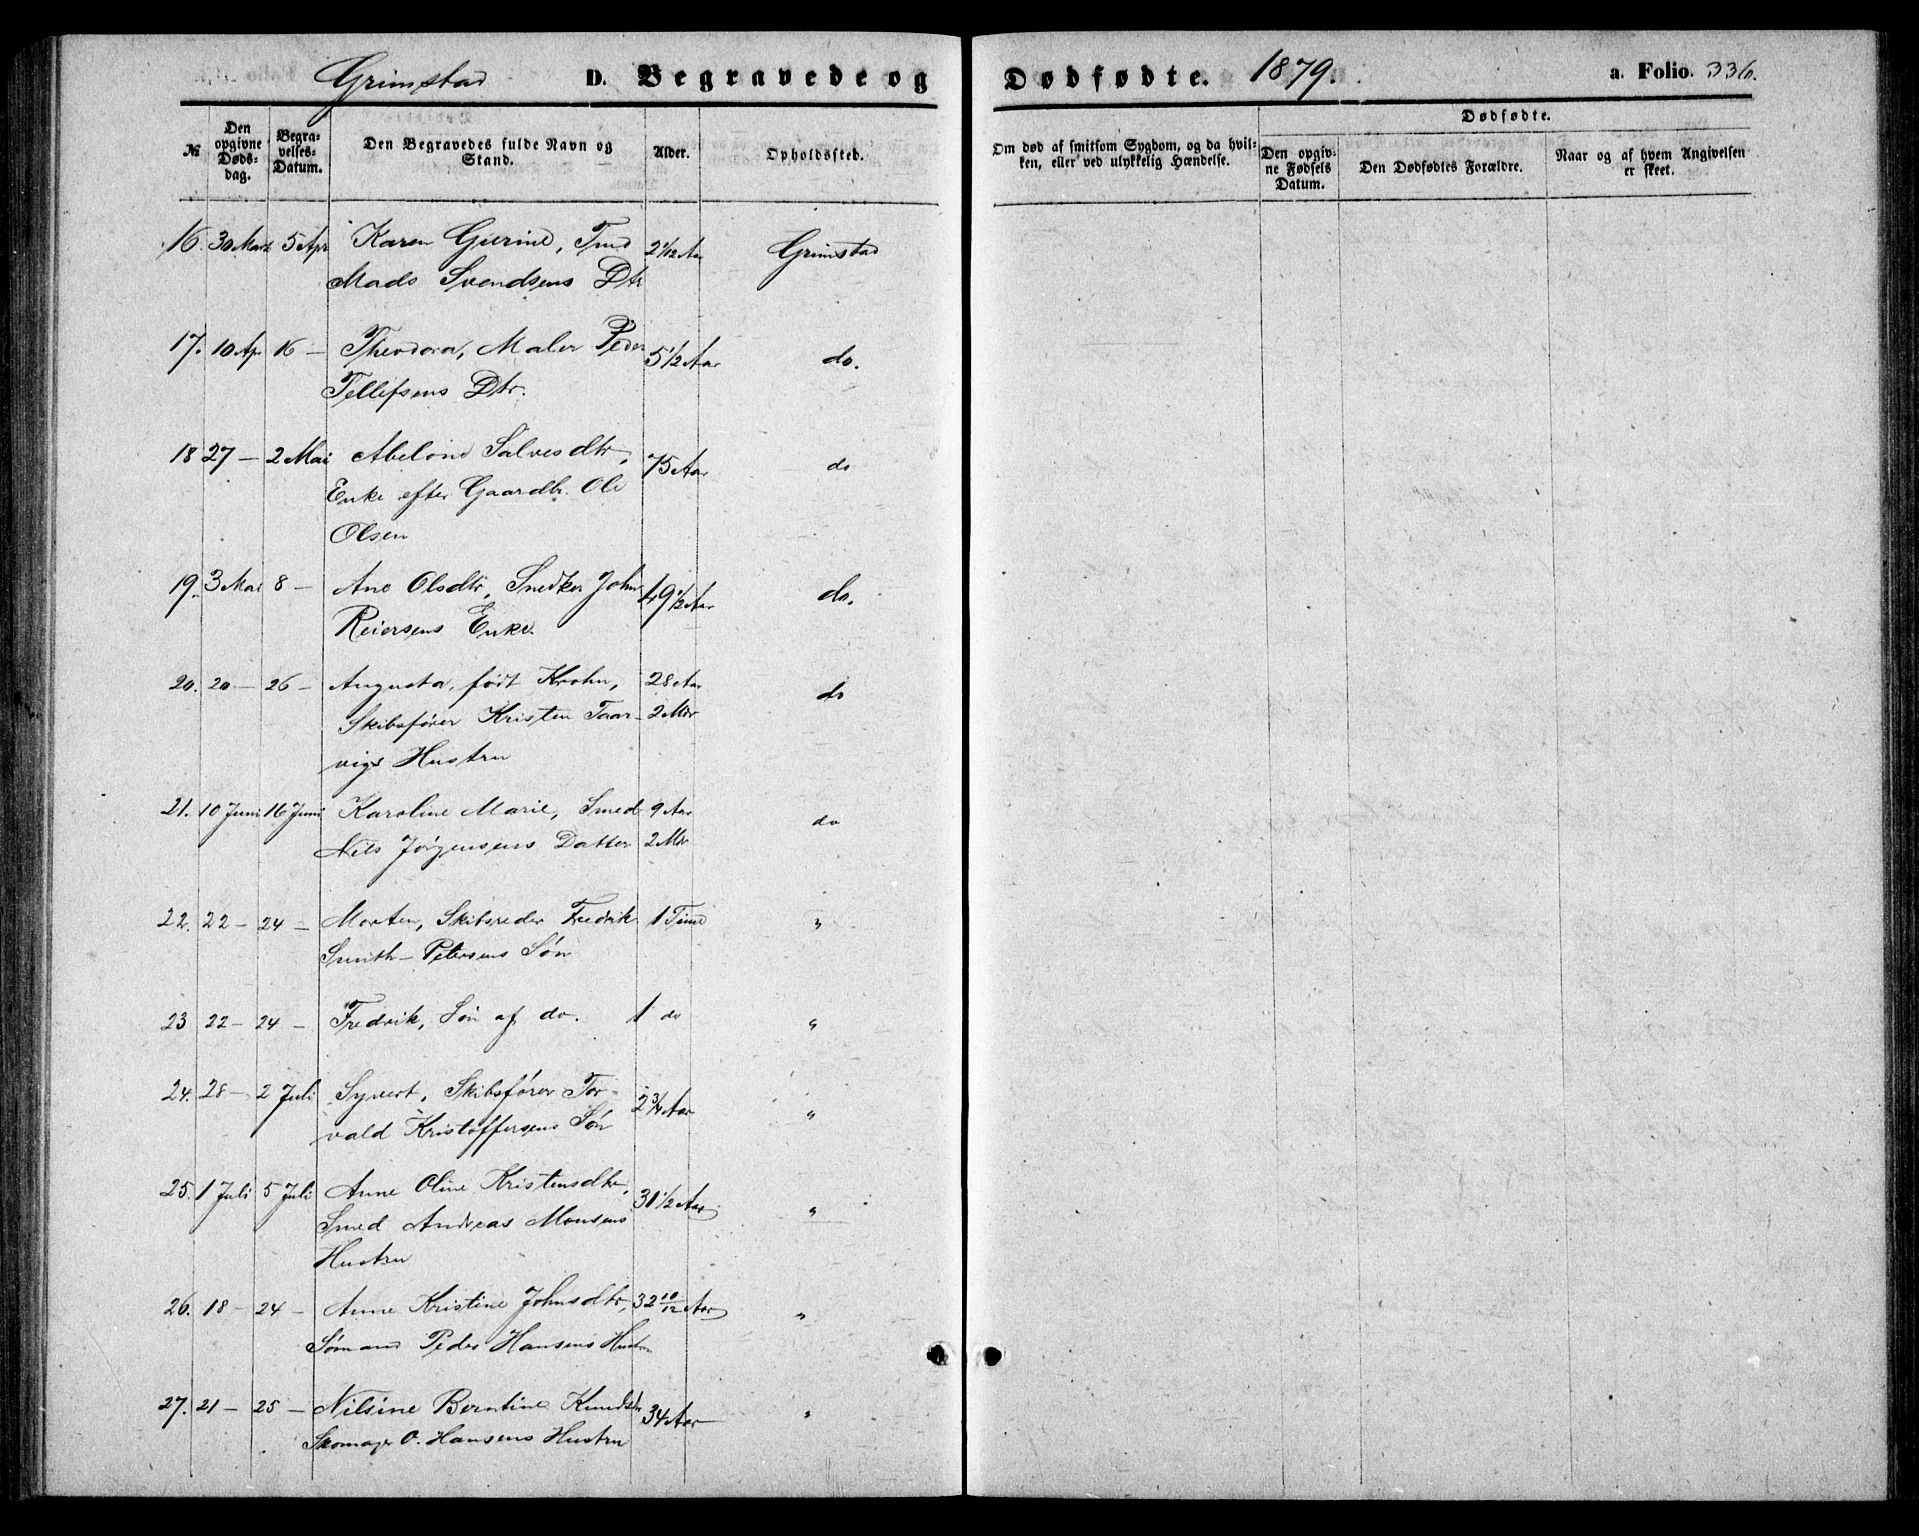 Grimstad D. Begravede og Dødfødte. 1879. a. Folio. 336.
№ Den opgivne Døds-dag. Begra-velses-Datum. Den Begravedes fulde Navn og Stand. Alder. Opholdssted. Om død af smitsom Sygdom, og da hvil-ken, eller ved ulykkelig Hændelse. Dødfødte. Den opgiv-ne Fødsels Datum. Den Dødfødtes Forældre. Naar og af hvem Angivelsen er skeet.
16. 30 Marts 5 Apr Karen Gurine, 2 1/12 Aar Grimstad
Mads Svendsens Dtr
17. 10 Ap. 16 — Theodora, Maler Peder 5 1/2 Aar do.
Tellefsens Dtr.
18 27 — 2 Mai Abelone Salvesdtr, 75 Aar do
Enke efter Gaardbr. Ole
Olsen
19. 3 Mai 8 — Ane Olsdtr, Snedker John 49 1/2 Aar do.
Reiersens Enke
20. 20 — 26 — Augusta, født Krohn, 28 Aar do
Skibsfører Kristen Taar- 2 Mdr
vigs Hustru
21. 10 Juni 16 Juni Karoline Marie, Smed 9 Aar do
Nils Jørgensens Datter 2 Mdr
22. 22 — 24 — Morten, Skibsreder Fredrik 1 Time "
Smith-Petersens Søn
23 22 — 24 — Fredrik, Søn af do. 1 do "
24. 28 — 2 Juli Syvert, Skibsfører Tor- 2 3/4 Aar "
vald Kristoffersens Søn
25. 1 Juli 5 Juli Anne Oline Kristensdtr, 31 1/2 Aar "
Smed Andreas Monsens
Hustru
26. 18 — 24 — Anne Kristine Johnsdtr, 32 10/12 Aar "
Sømand Peder Hansens Hustru
27. 21 — 25 — Nilsine Berntine Knudsdtr 34 Aar "
Skomager O. Hansens Hustru